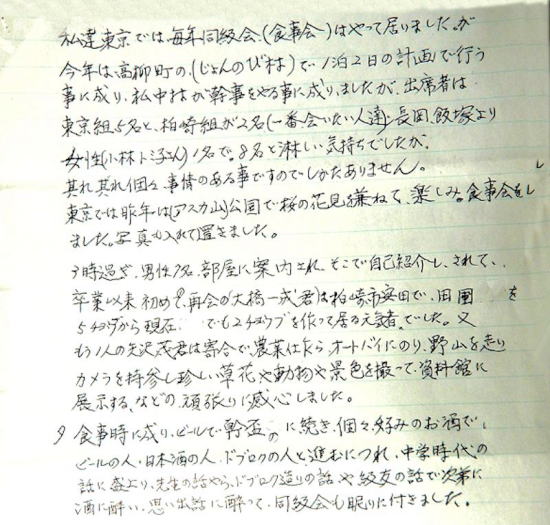 私達東京では毎年同級会、(食事会)はやって居りました。が
今年は高柳町の、(じょんのび村)で1泊2日の計画で行う
事に成り、私中村が幹事をやる事に成りましたが、出席者は
東京組5名と、柏崎組が2名(一番会いたい人達)長岡、飯塚より
女性(小林トミ子さん)1名で。8名と淋しい気持ちでしたが、
其れ其れ個々、事情のある事ですのでしかたありません。
東京では昨年は(アスカ山)公園で桜の花見を兼ねて、楽しみ。食事会をし
ました。写真も入れて置きました。
3時過ぎ、男性7名、部屋に案内され、そこで自己紹介し、されて、
卒業以来初めて、再会の大橋一成君は柏崎市安田で、田圃を
5チョウブから現在 でも2チョウブを作って居る元気者、でした。又
もう1人の矢沢茂君は寄合で、農業仕ながら オートバイにのり、野山を走り
カメラを持参し珍しい草花や動物や景色を撮って、資料館に
展示する、などの頑張りに感心しました。
夕食事時に成り、ビールで乾盃。に続き、個々、好みのお酒で、
ビールの人・日本酒の人、ドブロクの人と、進むにつれ、中学時代の
話に盛上り、先生の話やら、ドブロク造りの話や級友の話で次第に
酒に酔い、思い出話に酔って、同級会も眠りに付きました。